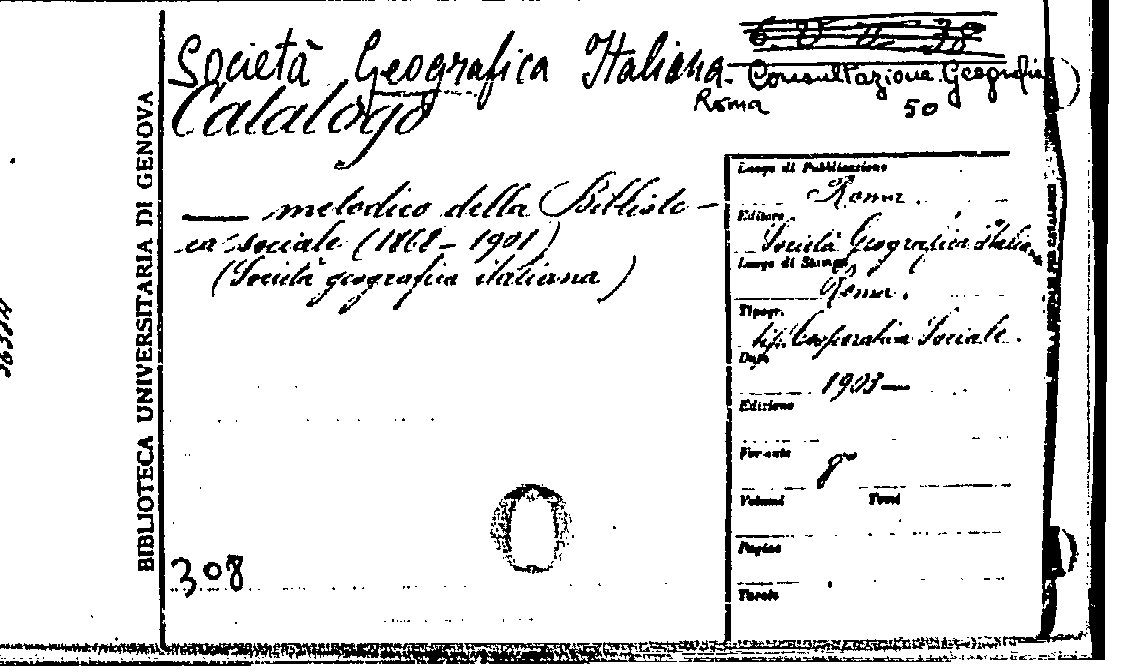 BIBLIOTECA UNIVERSITARIA DI GENOVA
6 D n 38
Società Geografica Italiana - Consultazione Geografia
Roma 50
Catalogo
— metodico della Bibliote-
ca sociale (1868-1901)
(Società geografica italiana)
308
Luogo di Pubblicazione
Roma.
Editore
Società Geografica Italia
Luogo di Stampa
Roma.
Tipogr.
tip. Cooperativa Sociale.
Data
1903—
Edizione
Formato
8°
Volumi Tomi
Pagine
Tavole